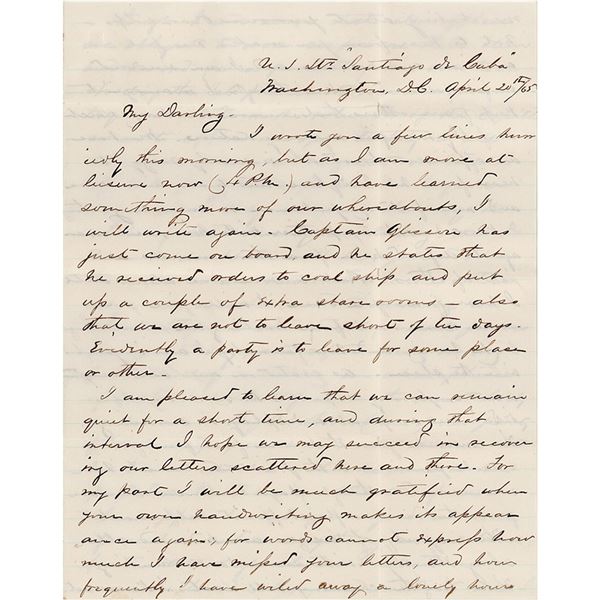 U. S. Str "Santiago de Cuba"
Washington, D.C. April 20th/65
My Darling -
I wrote you a few lines hurr
iedly this morning, but as I am more at
leisure now (4 P.M.) and have learned
something more of our whereabouts, I
will write again - Captain Glisson has
just come on board, and he states that
he received orders to coal ship and put
up a couple of extra state rooms - also
that we are not to leave short of ten days.
Evidently a party is to leave for some place
or other -
I am pleased to learn that we can remain
quiet for a short time, and during that
interval I hope we may succeed in recover
ing our letters scattered here and there. For
my part I will be much gratified when
your own handwriting makes its appear
ance again; for words cannot express how
much I have missed your letters, and how
frequently I have wiled away a lonely hour